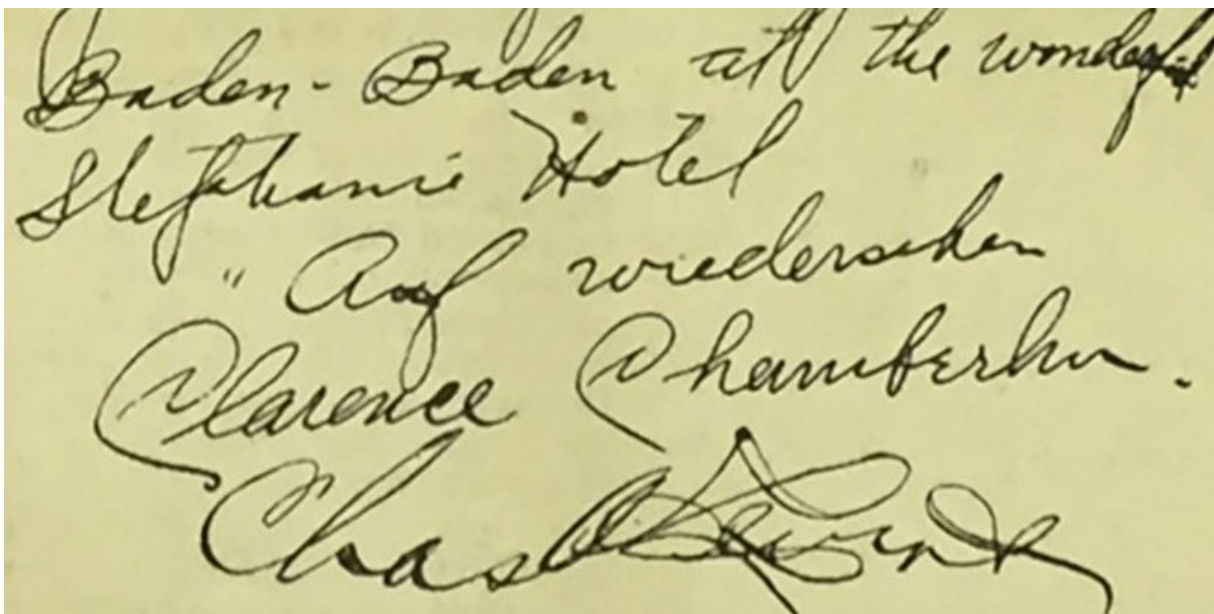 Baden-Baden at the wonderful
Stephanie Hotel
" Auf wiedersehen
Clarence Chamberlin.
Chas A Levine